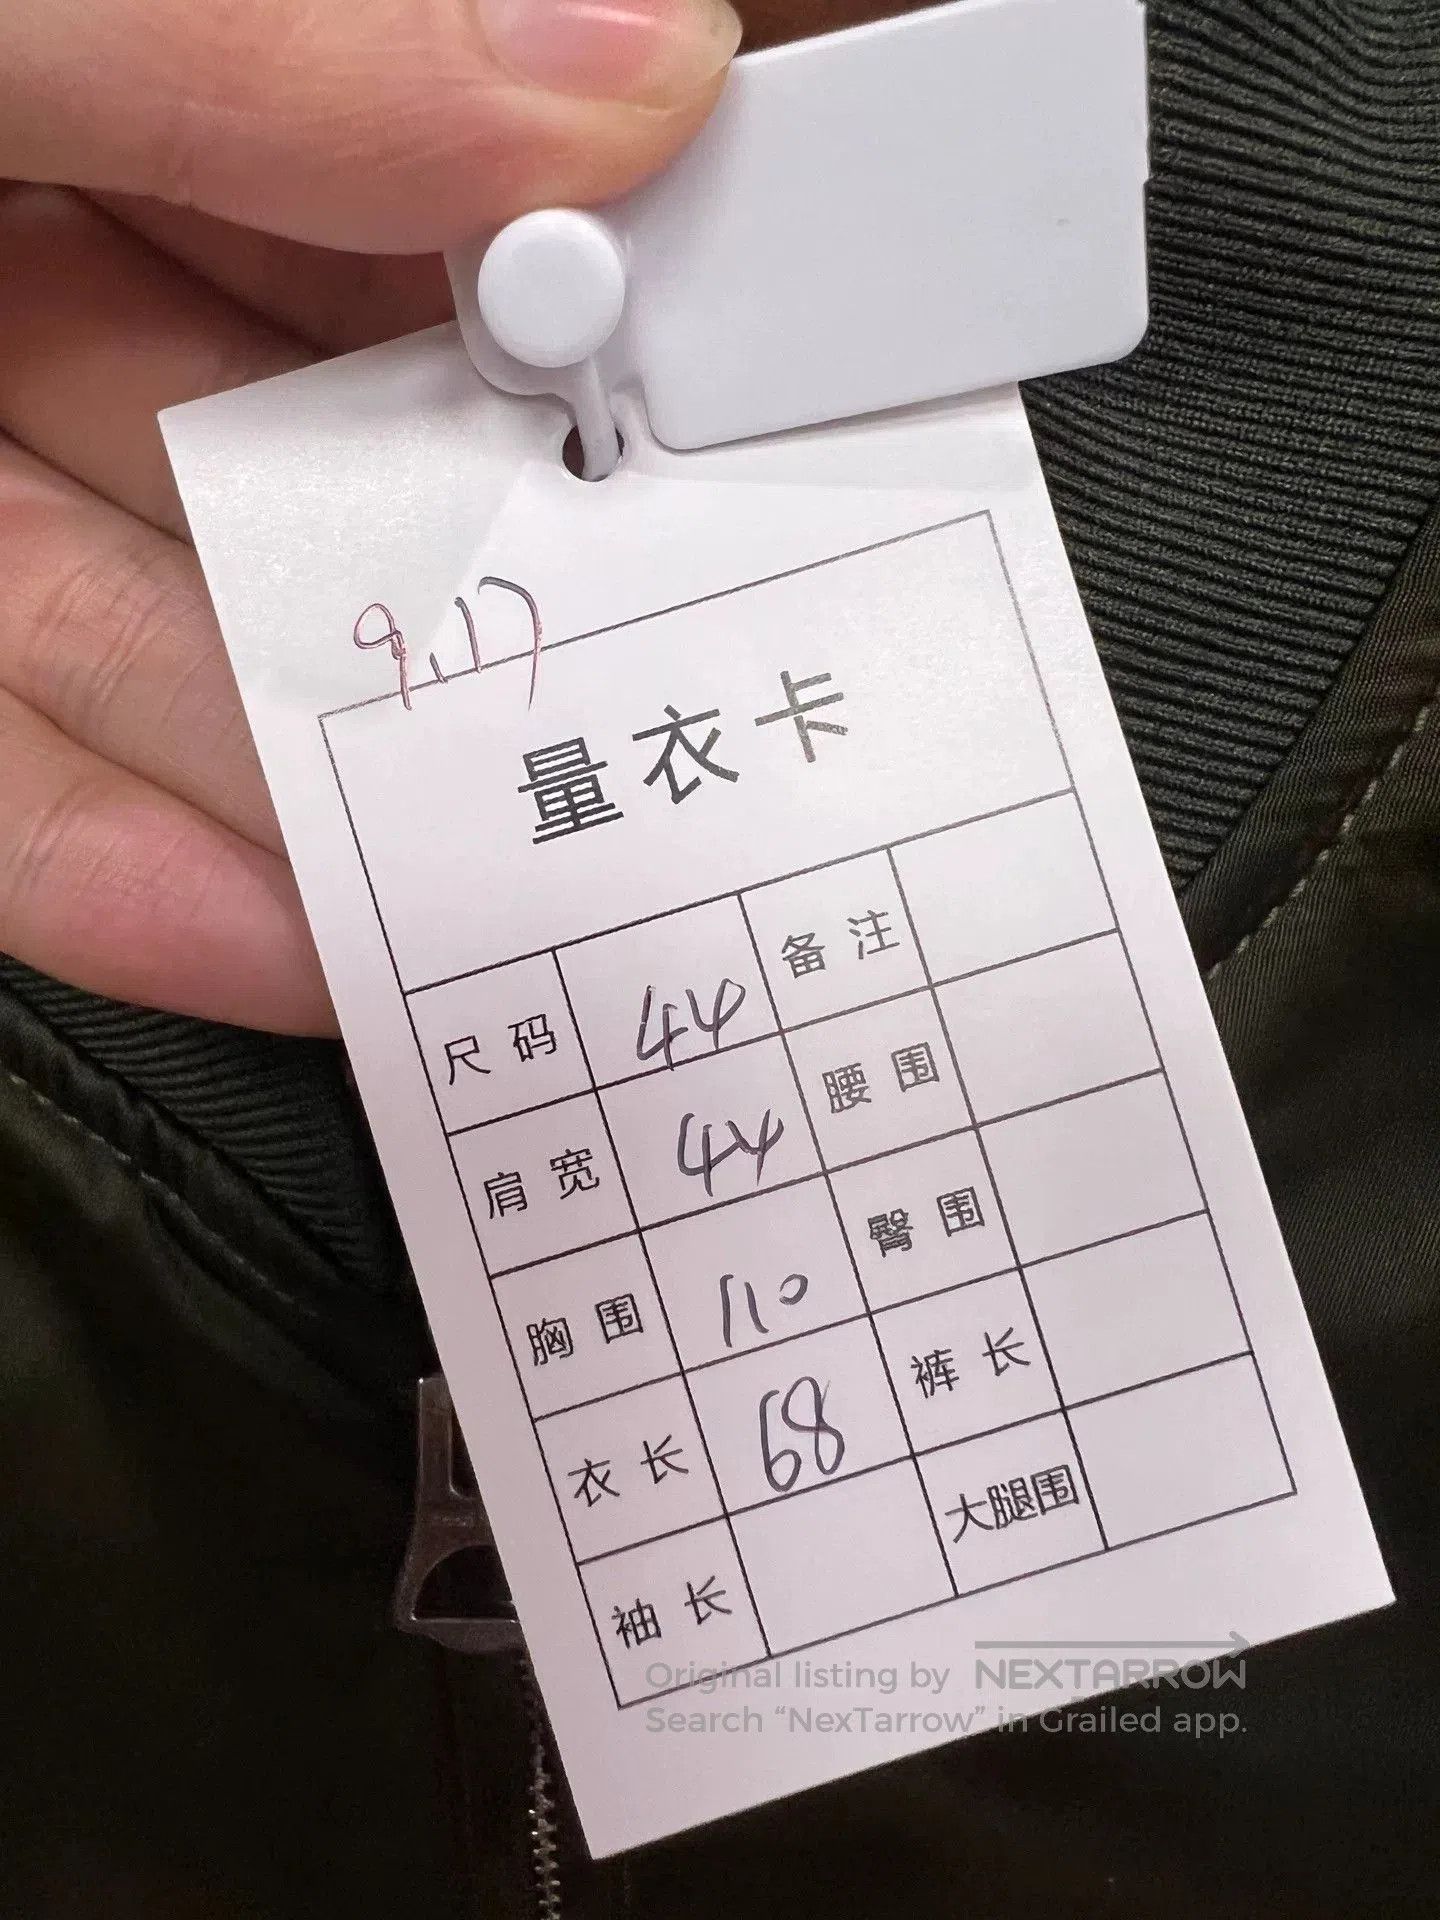 9.17
量衣卡
尺码 44 备注
肩宽 44 腰围
胸围 110 臀围
衣长 68 裤长
袖长 大腿围
Original listing by NEXTARROW
Search “NexTarrow” in Grailed app.